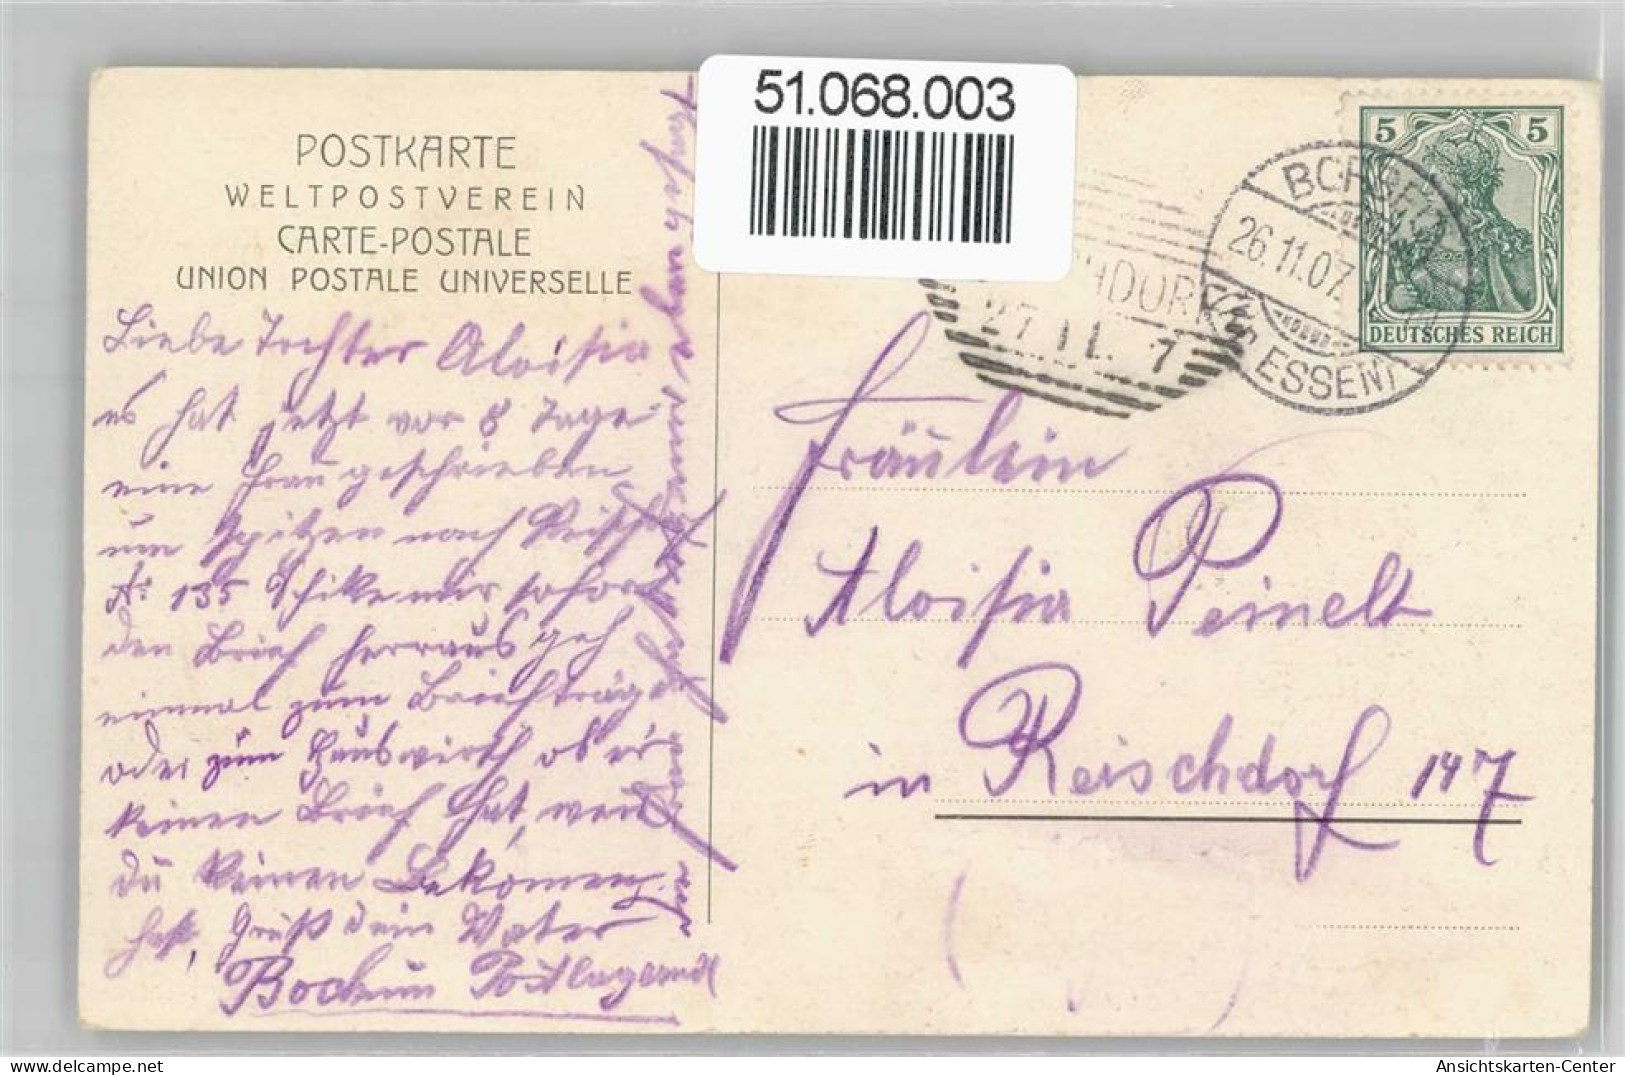 51.068.003
POSTKARTE
WELTPOSTVEREIN
CARTE-POSTALE
UNION POSTALE UNIVERSELLE
Liebe Tochter Aloisia
es hat jetzt vor 8 Tage
eine Frau geschrieben
um Spitzen nach
No 135 Schike mir sofort
den Brief herraus geh
einmal zum Briefträge
oder zum Hauswirth ob er
keinen Brief hat, weil
du keinen Bekomen
hast, Gruß dein Vater
Bochum Postlagernd
5 5
DEUTSCHES REICH
26.11.07.
ESSEN
27.11. 7
Fräulein
Aloisia Peinelt
in Reischdorf 147
Ansichtskarten-Center